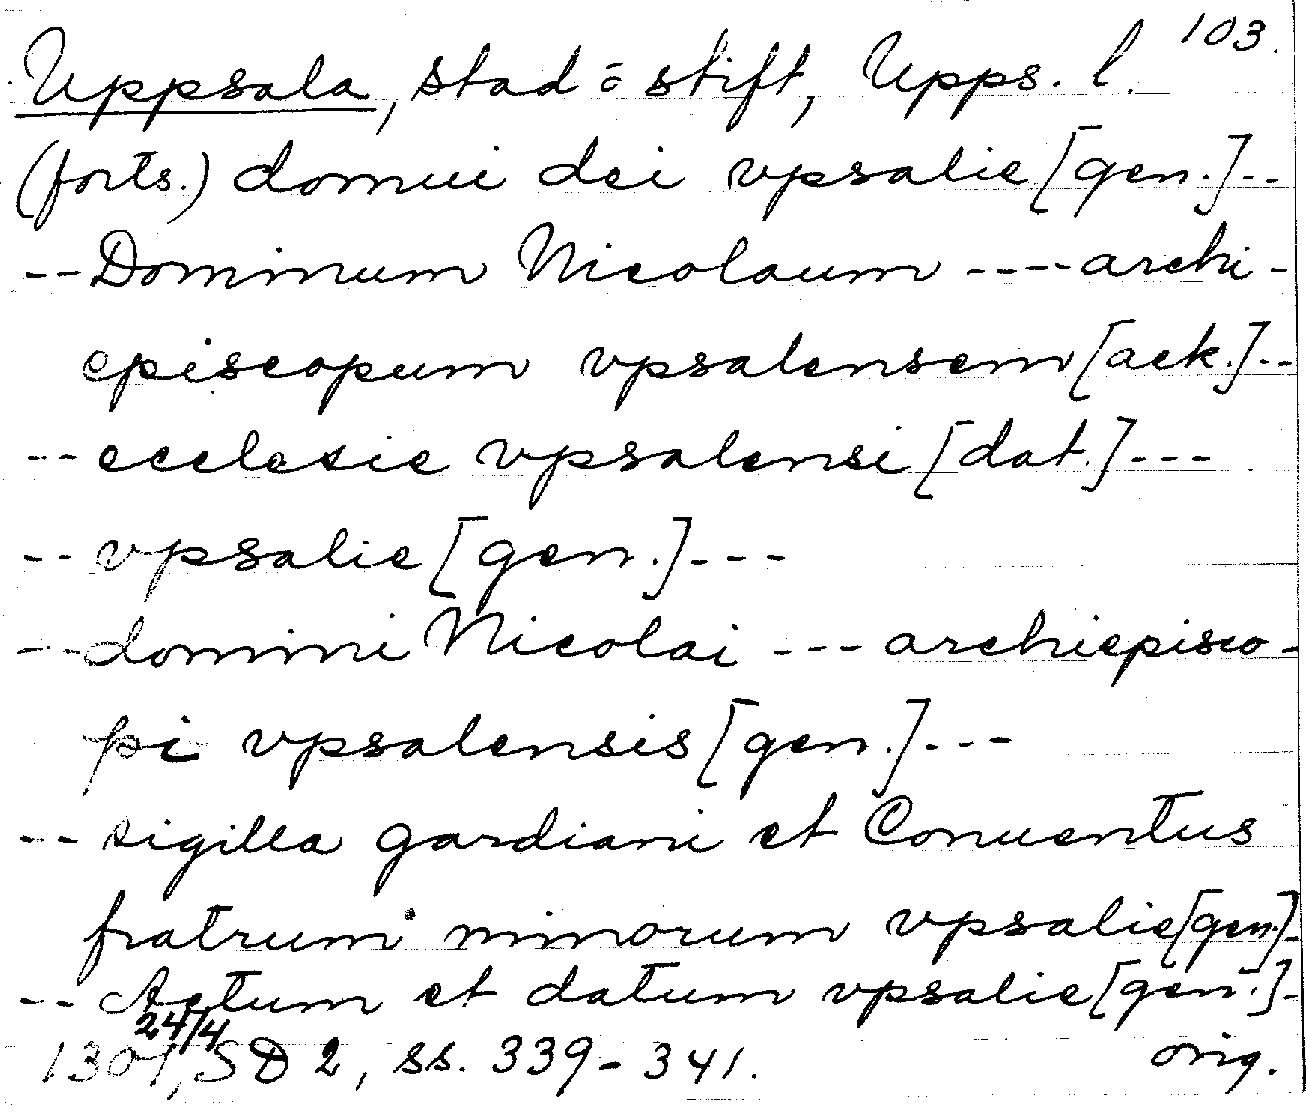 103.
Uppsala, stad o stift, Upps. l.
(forts.) domui dei vpsalie [gen.]--
--Dominum Nicolaum ----archi-
episcopum vpsalensem [ack.]--
--ecclesie vpsalensi [dat.]---
--vpsalie [gen.]---
--domini Nicolai ---archiepisco-
pi vpsalensis [gen.]---
--sigilla gardiani et Conuentus
fratrum minorum vpsalie [gen.]-
--Actum et datum vpsalie [gen.]-
24/4
1301, SD 2, ss. 339-341. orig.